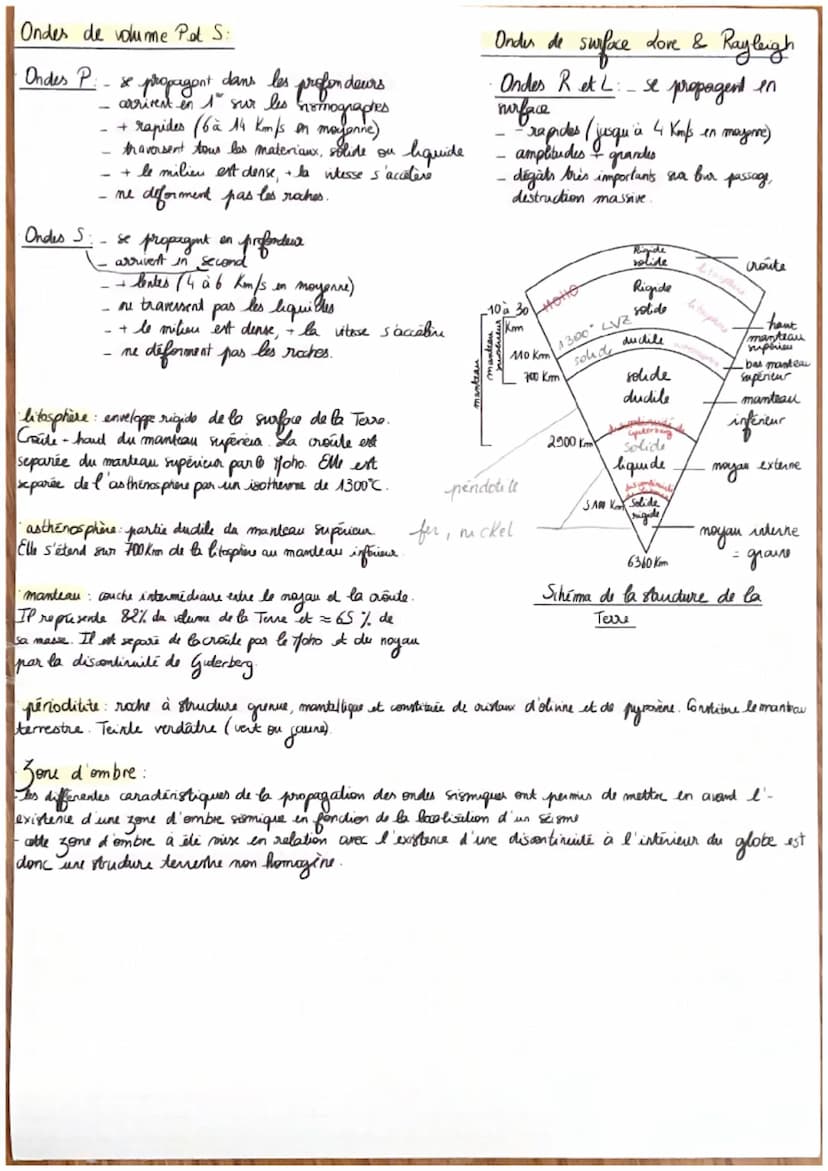 Ondes de volume P et S:
Ondes P: - se propagent dans les profondeurs
- arrivent en 1er sur les sismographes
- + rapides (6 à 14 Km/s en moyenne)
- traversent tous les materiaux, solide ou liquide
- + le milieu est dense, + la vitesse s'accélère
- ne déforment pas les roches.
Ondes S: - se propagent en profondeur
- arrivent en second
- + lentes (4 à 6 Km/s en moyenne)
- ne traversent pas les liquides
- + le milieu est dense, + la vitesse s'accélère
- ne déforment pas les roches.
Ondes de surface Love & Rayleigh
Ondes R et L: - se propagent en
surface
- - rapides (jusqu'à 4 Km/s en moyenne)
- amplitudes + grandes
- dégâts très importants sur leur passage,
destruction massive.
Rigide
solide
litosphère
croûte
MOHO
Rigide
solide
litosphère
10 à 30
Km
haut
manteau
supérieur
1300° LVZ
ductile
solide
110 Km
bas manteau
supérieur
700 Km
manteau
manteau
supérieur
solide
ductile
manteau
inférieur
discontinuité de
Gutenberg
2900 Km
solide
liquide
noyau externe
péridotite
5100 Km
solide
rigide
fer, nickel
noyau interne
= graine
6360 Km
Schéma de la structure de la
Terre
litosphère: enveloppe rigide de la surface de la Terre.
Croûte + haut du manteau supérieur. La croûte est
separée du manteau supérieur par le Moho. Elle est
separée de l'asthénosphère par un isotherme de 1300°C.
asthénosphère: partie ductile du manteau supérieur
Elle s'étend sur 700Km de la litosphère au manteau inférieur.
manteau: couche intermédiaire entre le noyau et la croûte.
Il représente 82% du volume de la Terre et ≈ 65 % de
sa masse. Il est separé de la croûte par le Moho et du noyau
par la discontinuité de Guterberg.
périoditite: roche à structure grenue, mantellique et constituée de cristaux d'olivine et de pyroxène. Constitue le manteau
terrestre. Teinte verdâtre (vert ou jaune).
Zone d'ombre:
- Les différentes caractéristiques de la propagation des ondes sismiques ont permis de mettre en avant l'-
existence d'une zone d'ombre sismique en fonction de la localisation d'un séisme
- cette zone d'ombre a été mise en relation avec l'existence d'une discontinuité à l'intérieur du globe est
donc une structure terrestre non homogène.